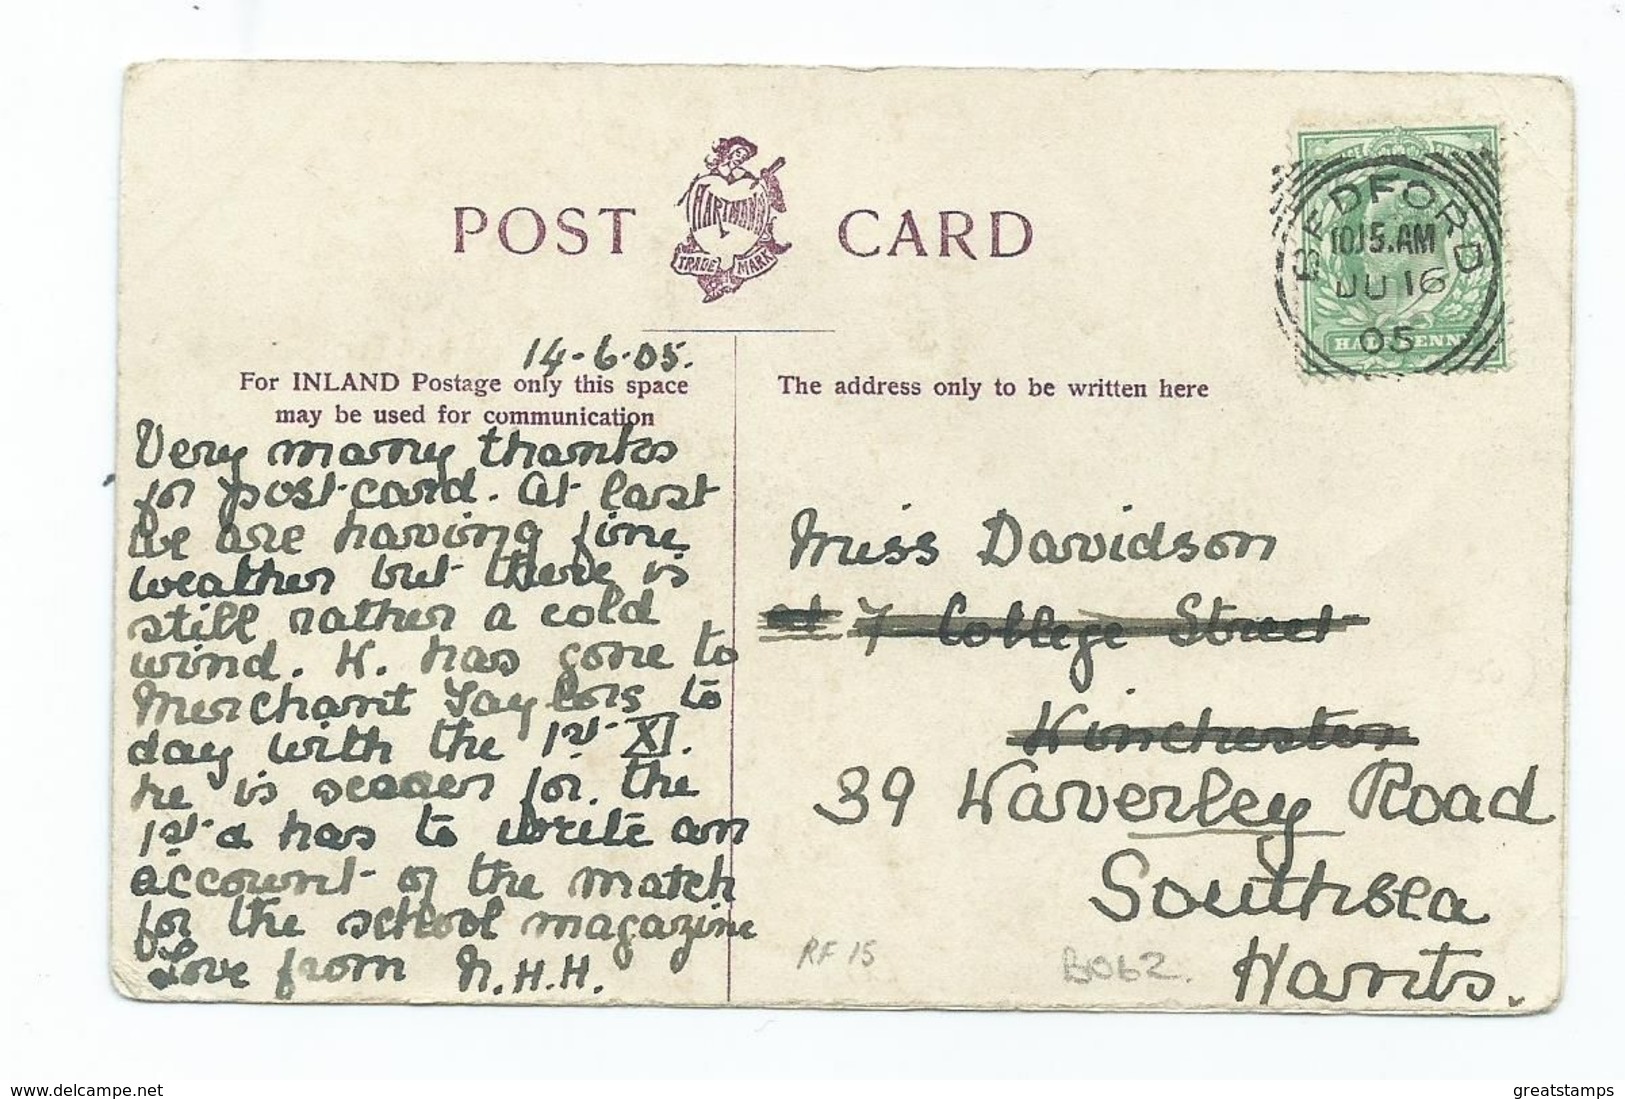 POST CARD
HARTMANN
TRADE MARK
BEDFORD
10.15.AM
JU 16
05
HALFPENNY
14-6-05.
For INLAND Postage only this space
may be used for communication
The address only to be written here
Very many thanks
for post-card. At last
we are having fine
weather but there is
still rather a cold
wind. H. has gone to
Merchant Taylors to
day with the 1st XI.
he is scorer for the
1st & has to write an
account of the match
for the school magazine
Love from N.H.H.
Miss Davidson
at 7 College Street
Winchester
39 Waverley Road
Southsea
Hants.
RF 15
B062.
www.delcampe.net
greatstamps